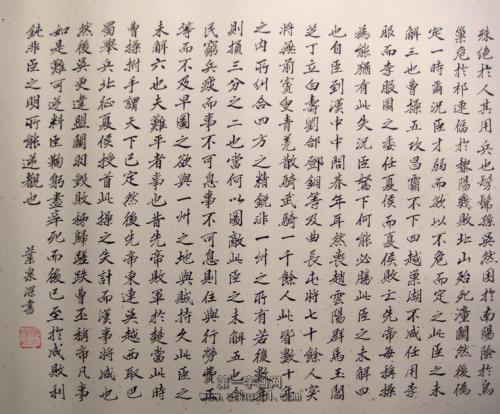 殊絶於人其用兵也髣髴孫吳然困於南陽險於烏
巢危於祁連偪於黎陽幾敗北山殆死潼關然後僞
定一時爾況臣才弱而欲以不危而定之此臣之未
解三也曹操五攻昌霸不下四越巢湖不成任用李
服而李服圖之委任夏侯而夏侯敗亡先帝每稱操
為能猶有此失況臣駑下何能必勝此臣之未解四
也自臣到漢中中間朞年耳然喪趙雲陽群馬玉閻
芝丁立白壽劉郃鄧銅等及曲長屯將七十餘人突
將無前賨叟青羌散騎武騎一千餘人此皆數十年
之內所糾合四方之精銳非一州之所有若復數年
則損三分之二也當何以圖敵此臣之未解五也今
民窮兵疲而事不可息事不可息則住與行勞費正
等而不及早圖之欲與一州之地與賊持久此臣之
未解六也夫難平者事也昔先帝敗軍於楚當此時
曹操拊手謂天下已定然後先帝東連吳越西取巴
蜀舉兵北征夏侯授首此操之失計而漢事將成也
然後吳更違盟關羽毀敗秭歸蹉跌曹丕稱帝凡事
如是難可逆料臣鞠躬盡瘁死而後已至於成敗利
鈍非臣之明所能逆覩也
葉泉深書